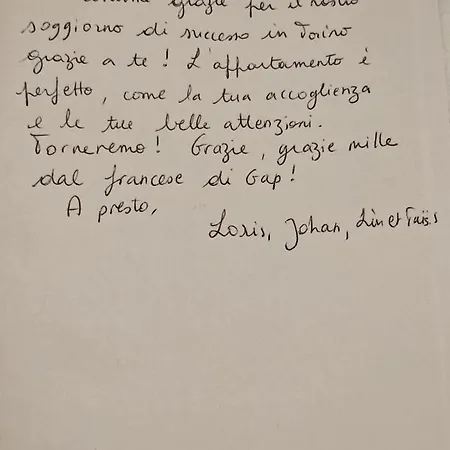 grazie per il nostro
soggiorno di successo in Torino
grazie a te ! L'appartamento è
perfetto, come la tua accoglienza
e le tue belle attenzioni.
Torneremo ! Grazie, grazie mille
dal francese di Gap !
A presto,
Loris, Johan, Lin et Taïs